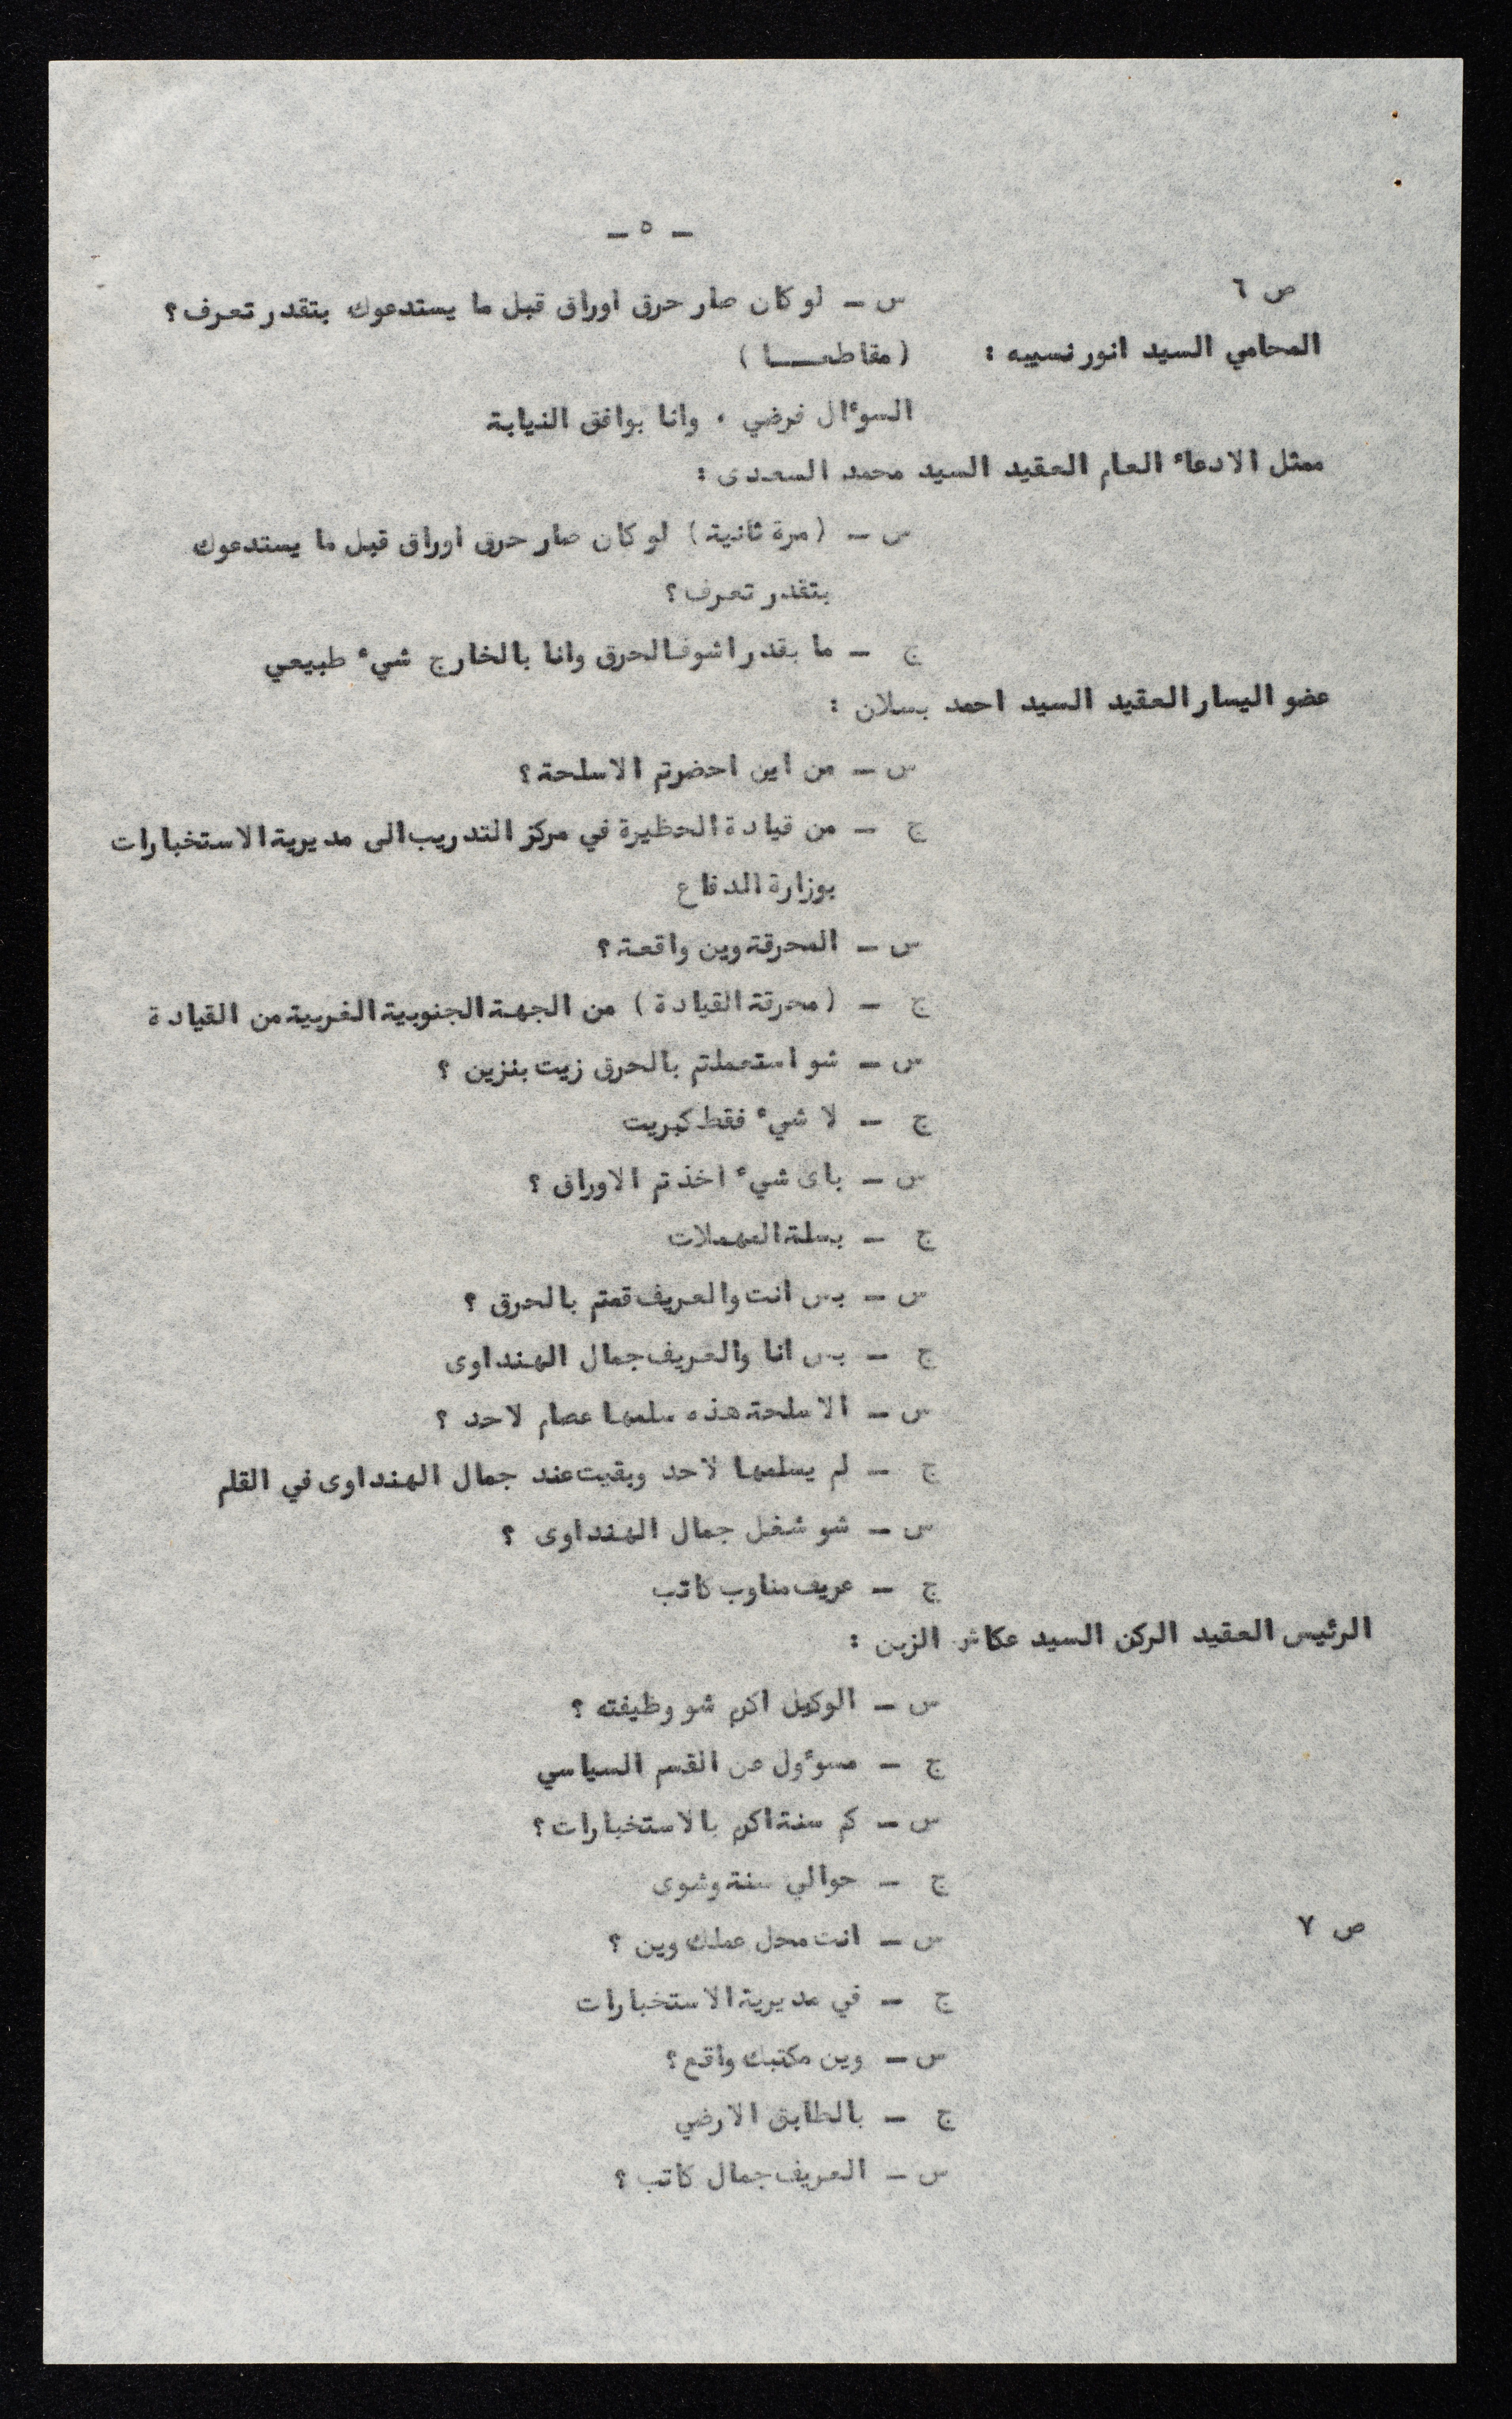 ـ ٥ ـ
ص ٦
س ـ لو كان صار حرق اوراق قبل ما يستدعوك بتقدر تعرف؟
المحامي السيد انور نسيبه : (مقاطعـــا )
السوءال فرضي ٠ وانا بوافق النيابة
ممثل الادعاء العام العقيد السيد محمد السعدى :
س ـ (مرة ثانية) لو كان صار حرق اوراق قبل ما يستدعوك
بتقدر تعرف؟
ج ـ ما بقدر اشوف الحرق وانا بالخارج شيء طبيعي
عضو اليسار العقيد السيد احمد بسلان :
س ـ من اين احضرتم الاسلحة؟
ج ـ من قيادة الحظيرة في مركز التدريب الى مديرية الاستخبارات
بوزارة الدفاع
س ـ المحرقة وين واقعة؟
ج ـ (محرقة القيادة) من الجهة الجنوبية الغربية من القيادة
س ـ شو استعملتم بالحرق زيت بنزين ؟
ج ـ لا شيء فقط كبريت
س ـ باى شيء اخذتم الاوراق ؟
ج ـ بسلة المهملات
س ـ بس انت والعريف قمتم بالحرق ؟
ج ـ بس انا والعريف جمال الهنداوى
س ـ الاسلحة هذه سلمها عصام لاحد ؟
ج ـ لم يسلمها لاحد وبقيت عند جمال الهنداوى في القلم
س ـ شو شغل جمال الهنداوى ؟
ج ـ عريف مناوب كاتب
الرئيس العقيد الركن السيد عكاش الزبن :
س ـ الوكيل اكرم شو وظيفته ؟
ج ـ مسوءول عن القسم السياسي
س ـ كم سنة اكرم بالاستخبارات؟
ج ـ حوالي سنة وشوى
ص ٧
س ـ انت محل عملك وين ؟
ج ـ في مديرية الاستخبارات
س ـ وين مكتبك واقع؟
ج ـ بالطابق الارضي
س ـ العريف جمال كاتب؟